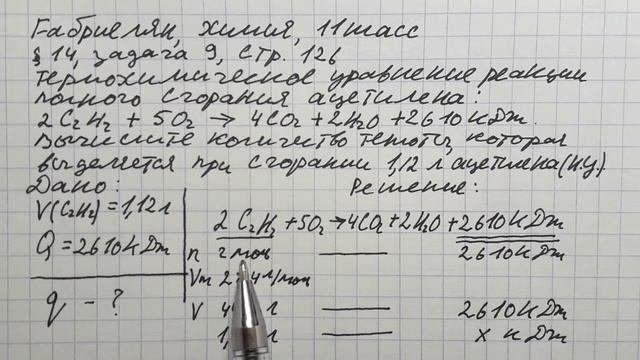 Габриелян, химия, 11 класс
§ 14, задача 9, стр. 126
Термохимическое уравнение реакции
полного сгорания ацетилена:
2C₂H₂ + 5O₂ → 4CO₂ + 2H₂O + 2610 кДж.
Вычислите количество теплоты, которая
выделяется при сгорании 1,12 л ацетилена (н.у.).
Дано: Решение:
V(C₂H₂) = 1,12 л
Q = 2610 кДж
q - ?
2C₂H₂ + 5O₂ → 4CO₂ + 2H₂O + 2610 кДж
n 2 моль —— 2610 кДж
Vm л/моль
V л —— 2610 кДж
л —— x кДж